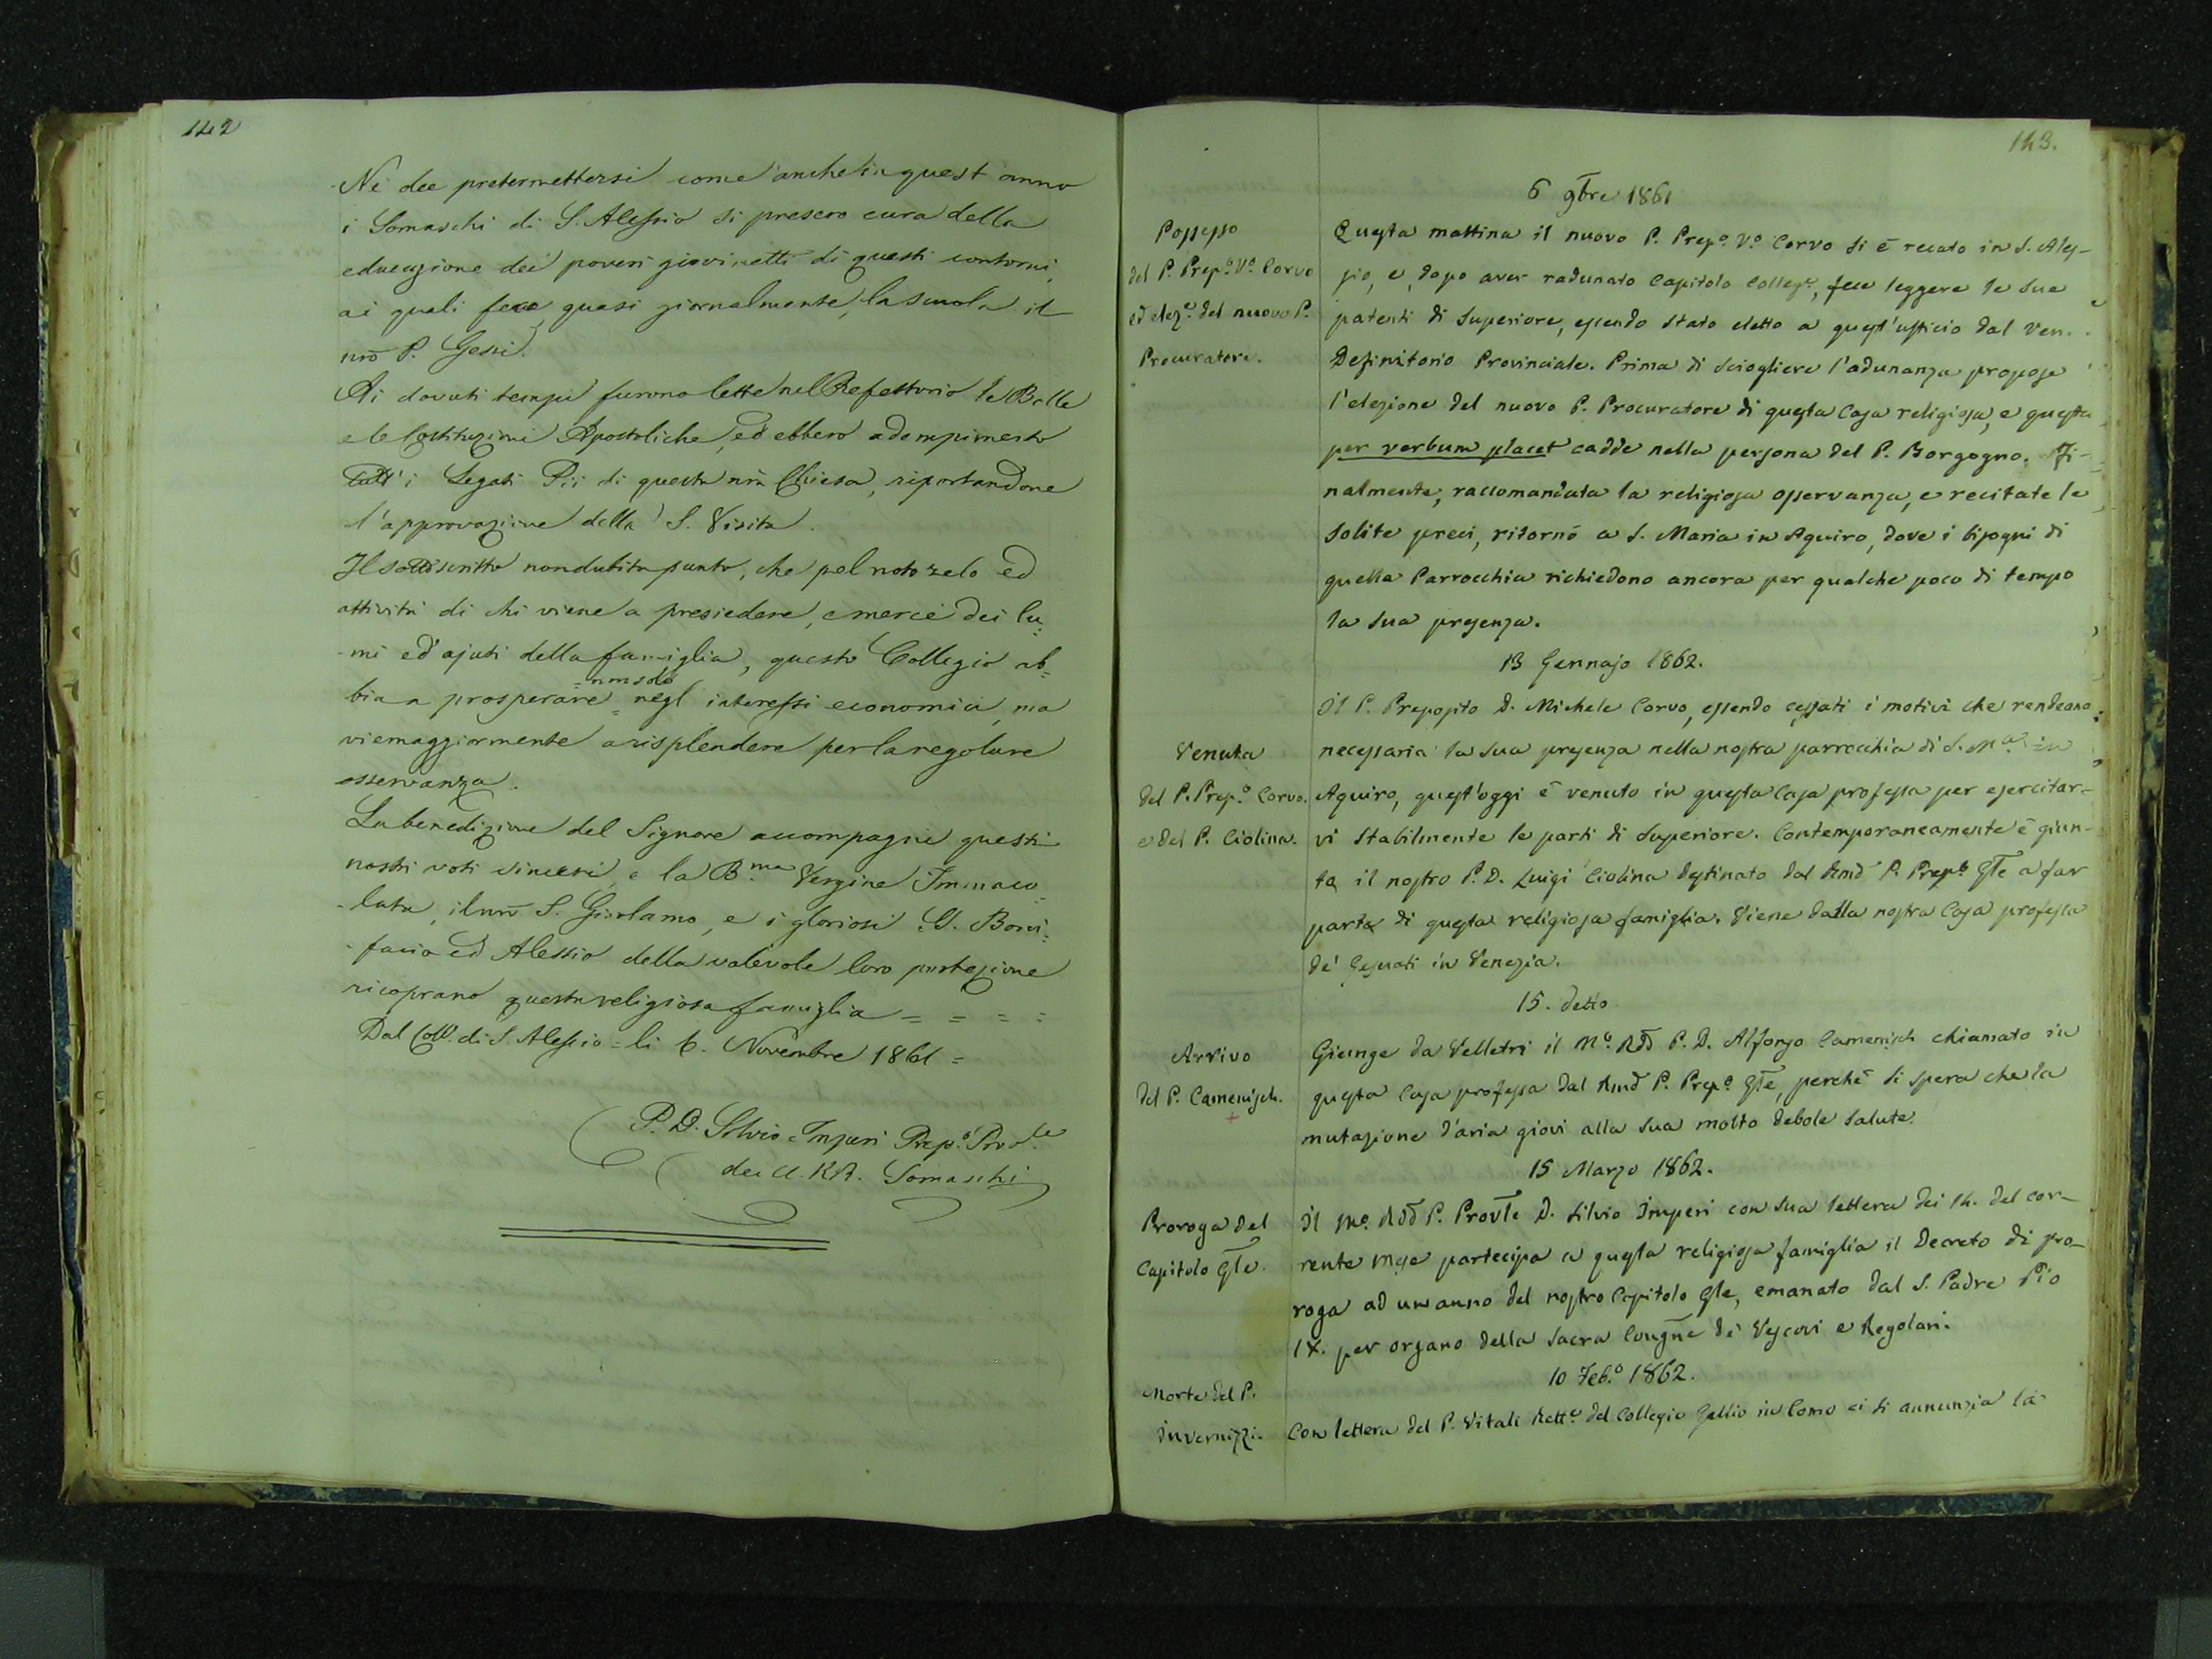 142
Nè dee pretermettersi come anche in quest'anno
i Somaschi di S. Alessio si presero cura della
educazione dei poveri giovinetti di questi contorni,
ai quali fece quasi giornalmente la scuola il
nrō P. Gessi.
Ai dovuti tempi furono lette nel Refettorio le Bolle
e le Costituzioni Apostoliche, ed ebbero adempimento
tutt'i Legati Pii di questa nrā Chiesa, riportandone
l'approvazione della S. Visita.
Il sottoscritto non dubita punto, che pel noto zelo ed
attività di chi viene a presiedere, e mercè dei lu=
mi ed ajuti della famiglia, questo Collegio ab=
=non solo
bia a prosperare = negl'interessi economici, ma
viemaggiormente a risplendere per la regolare
osservanza.
La benedizione del Signore accompagni questi
nostri voti sinceri, e la B.ma Vergine Immaco=
lata, il nrō S. Girolamo, e i gloriosi SS. Boni=
facio ed Alessio della valevole loro protezione
ricoprano questa religiosa famiglia = = = =
Dal Coll.º di S. Alessio = li 6. Novembre 1861 =
P. D. Silvio Imperi Prep.º Prov.le
dei CC. RR. Somaschi
143.
6 9b̄re 1861
Possesso
del P. Prep.º V.º Corvo
ed elez.e del nuovo P.
Procuratore.
Questa mattina il nuovo P. Prep.º V.º Corvo si è recato in S. Ales-
sio, e, dopo aver radunato Capitolo Colleg.e, fece leggere le sue
patenti di Superiore, essendo stato eletto a quest'ufficio dal Ven.
Definitorio Provinciale. Prima di sciogliere l'adunanza propose
l'elezione del nuovo P. Procuratore di questa Casa religiosa, e questa
per verbum placet cadde nella persona del P. Borgogno. Fi-
nalmente, raccomandata la religiosa osservanza, e recitate le
solite preci, ritornò a S. Maria in Aquiro, dove i bisogni di
quella Parrocchia richiedono ancora per qualche poco di tempo
la sua presenza.
13 Gennajo 1862.
Venuta
del P. Prep.º Corvo.
e del P. Ciolina.
Il P. Preposito D. Michele Corvo, essendo cessati i motivi che rendeano
necessaria la sua presenza nella nostra parrocchia di S. M.a in
Aquiro, quest'oggi è venuto in questa Casa professa per esercitar-
vi stabilmente le parti di Superiore. Contemporaneamente è giun-
to il nostro P. D. Luigi Ciolina destinato dal Rm̄o P. Prep.º Gl̄e a far
parte di questa religiosa famiglia. Viene dalla nostra Casa professa
de' Gesuati in Venezia.
15. detto
Arrivo
del P. Camenisch.
+
Giunge da Velletri il M.º Rd̄o P. D. Alfonso Camenisch chiamato in
questa Casa professa dal Rm̄o P. Prep.º Gl̄e, perchè si spera che la
mutazione d'aria giovi alla sua molto debole salute.
15 Marzo 1862.
Proroga del
Capitolo Gl̄e.
Il M.º Rd̄o P. Provl̄e D. Silvio Imperi con sua lettera dei 14. del cor-
rente mese partecipa a questa religiosa famiglia il Decreto di pro-
roga ad un anno del nostro Capitolo Gl̄e, emanato dal S. Padre Pio
IX. per organo della Sacra Congn̄e de' Vescovi e Regolari.
10 Feb.º 1862.
Morte del P.
Invernizzi.
Con lettera del P. Vitali Rett.e del Collegio Gallio in Como ci si annunzia la